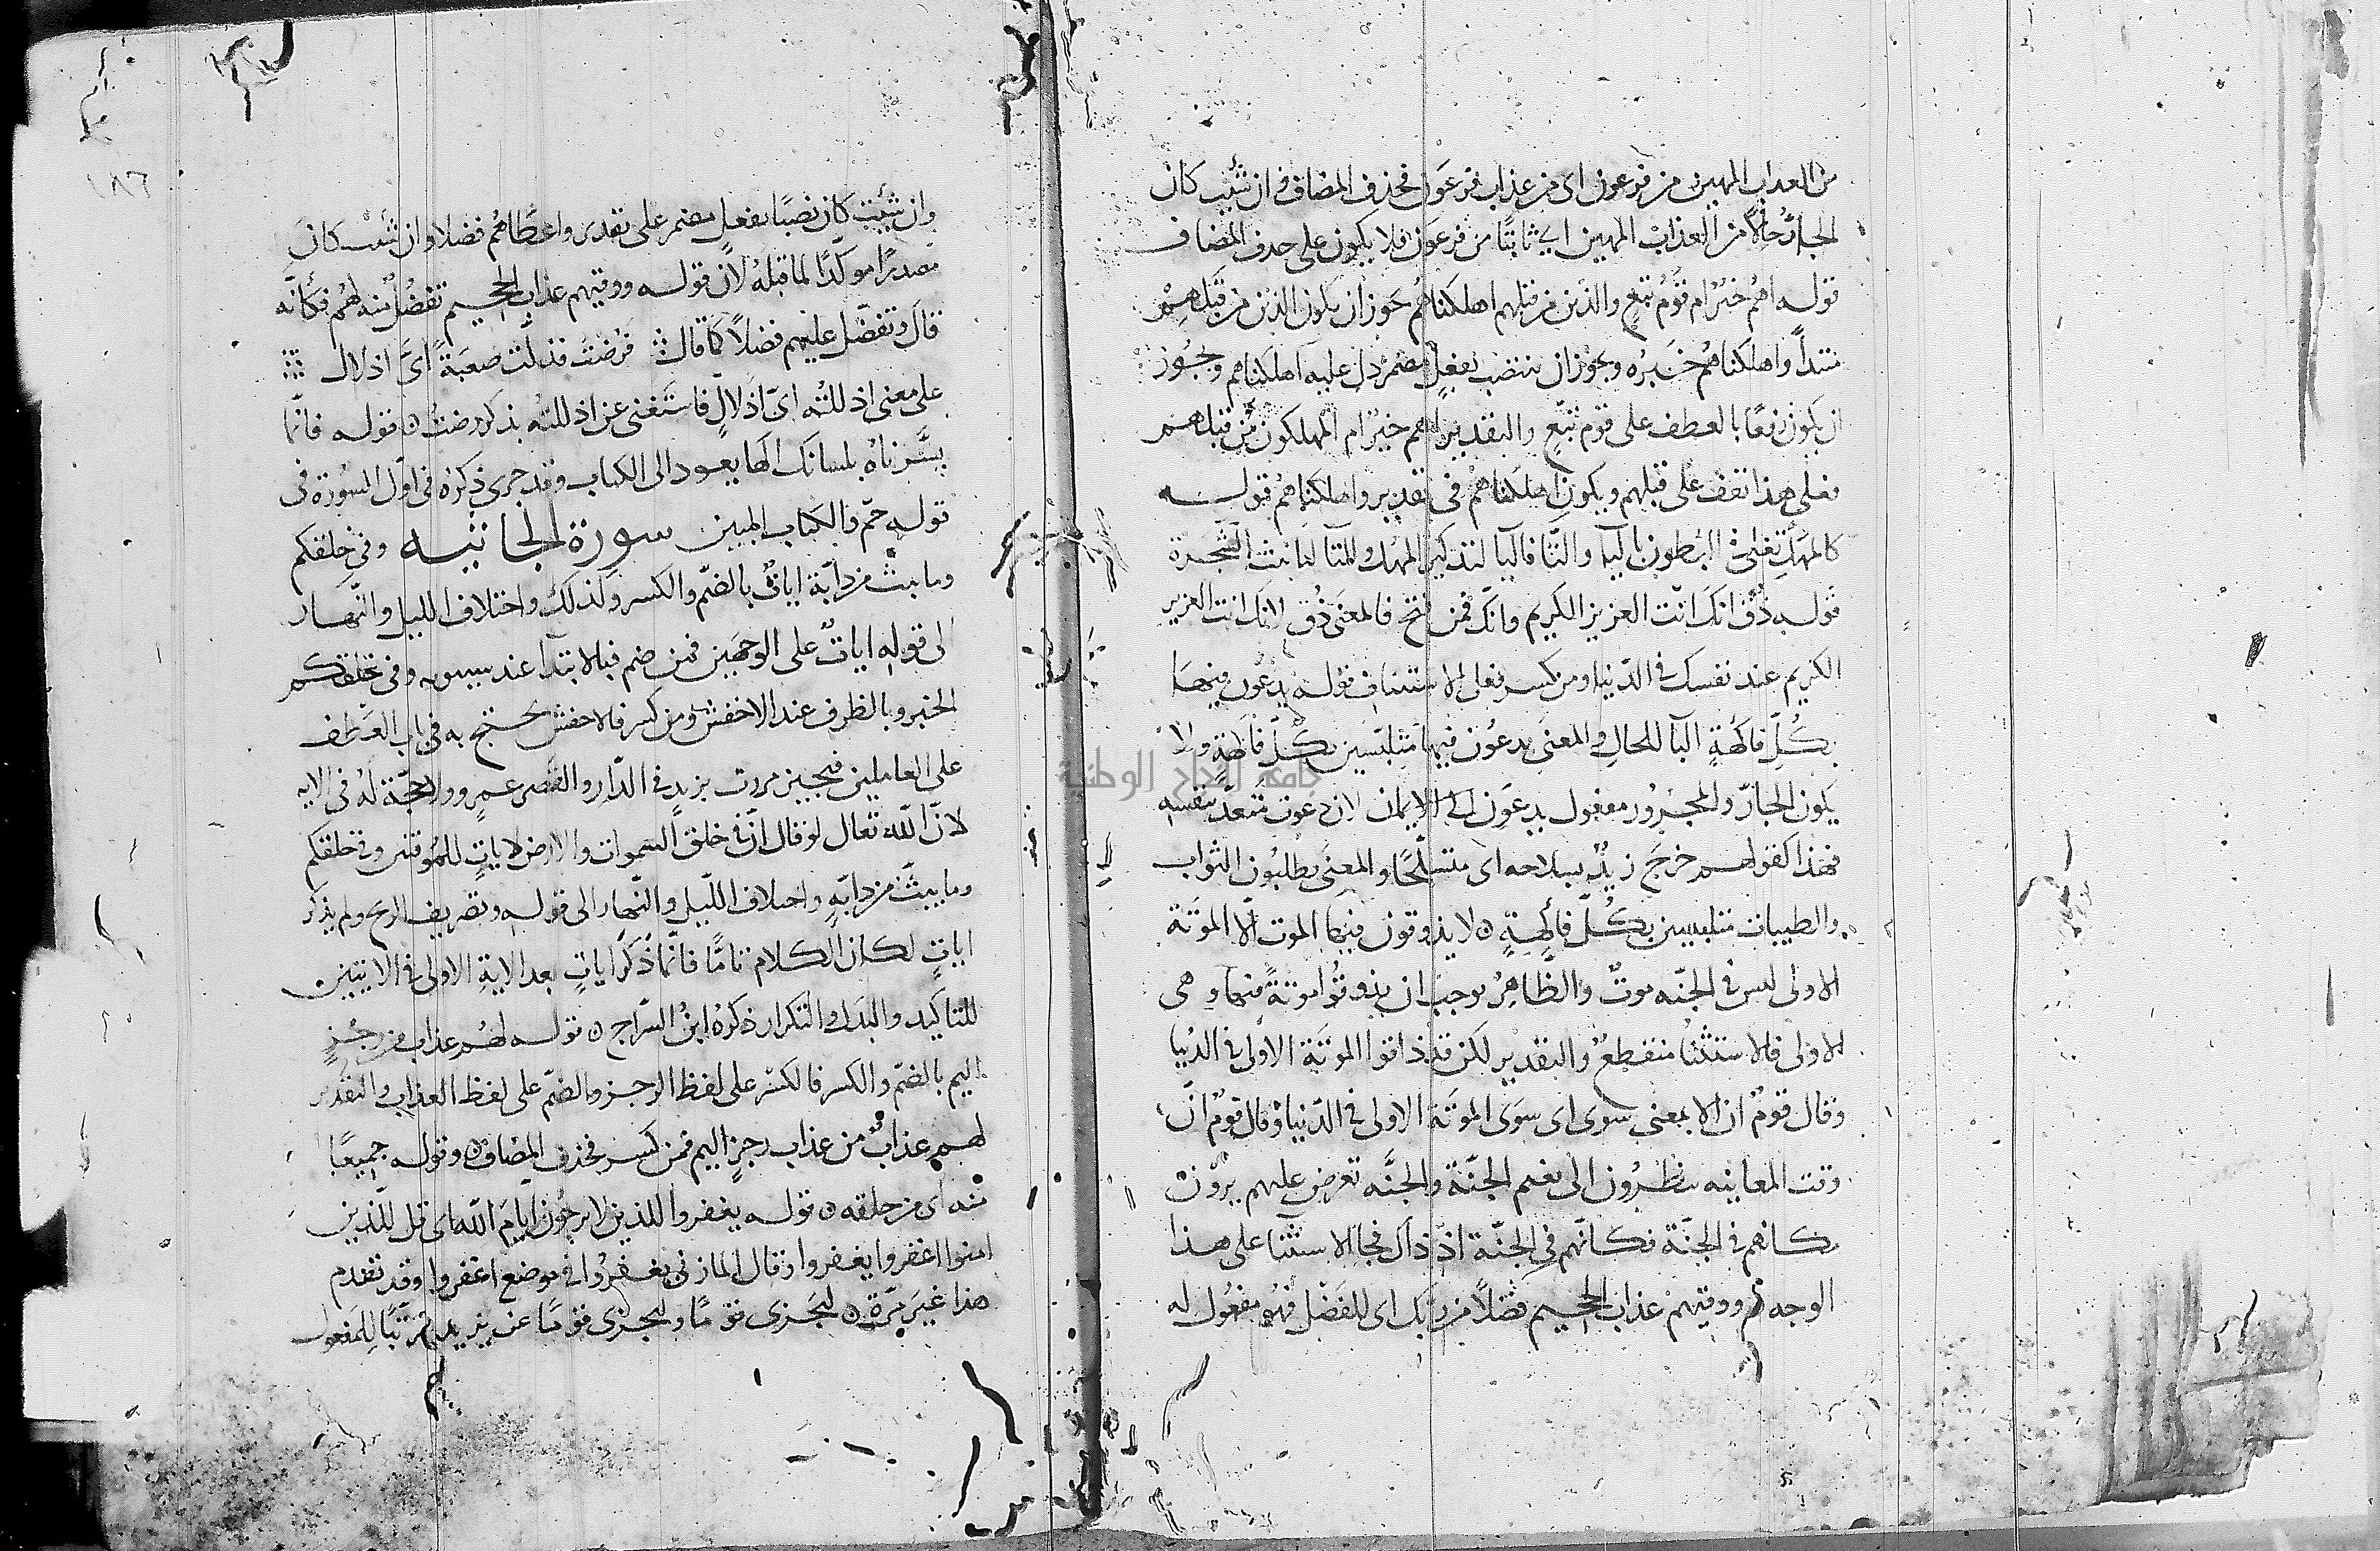 من العذاب المهين من فرعون اى من عذاب فرعون فحذف المضاف وان شئت كان
الجار حالا من العذاب المهين اى ثابتا من فرعون فلا يكون على حذف المضاف
قوله اهم خير ام قوم تبع والذين من قبلهم اهلكناهم جوز ان يكون الذين من قبلهم
مبتدأ واهلكناهم خبره ويجوز ان ينتصب بفعل مضمر دل عليه اهلكناهم ويجوز
ان يكون رفعا بالعطف على قوم تبع والتقدير اهم خير ام المهلكون من قبلهم
فعلى هذا تقف على قبلهم ويكون اهلكناهم فى تقدير واهلكناهم قوله
كالمهل تغلى فى البطون باليا والتا فاليا لتذكير المهل والتا لتانيث الشجرة
قوله ذق انك انت العزيز الكريم وانك فمن فتح فالمعنى ذق لانك انت العزيز
الكريم عند نفسك فى الدنيا ومن كسر فعلى الاستئناف قوله يدعون فيها
بكل فاكهة البا للحال والمعنى يدعون فيها متلبسين بكل فاكهة ولا
يكون الجار والمجرور مفعول يدعون لان دعوت متعد بنفسه
فهذا كقولهم خرج زيد بسلاحه اى متسلحا والمعنى يطلبون الثواب
والطيبات متلبسين بكل فاكهة لا يذوقون فيها الموت الا الموتة
الاولى ليس فى الجنه موت والظاهر يوجب ان يذوقوا موتة فيها وهى
الاولى فالاستثنا منقطع والتقدير لكن قد ذاقوا الموتة الاولى فى الدنيا
وقال قوم ان الا بمعنى سوى اى سوى الموتة الاولى فى الدنيا وقال قوم ان
وقت المعاينه ينظرون الى نعيم الجنة والجنه تعرض عليهم يرون
مكانهم فى الجنة فكانهم فى الجنة اذ ذاك فجا الاستثنا على هذا
الوجه ووقيهم عذاب الجحيم فضلا من ربك اى للفضل فهو مفعول له
وان شئت كان نصبا بفعل مضمر على تقدير واعطاهم فضلا وان شئت كان
مصدرا موكدا لما قبله لان قوله ووقيهم عذاب الجحيم تفضل منه لهم فكانه
قال وتفضل عليهم فضلا كما قال فرضت فذلت صعبة اى اذلال
على معنى اذللته اى اذلال فاستغنى عن اذللته بذكر رضت قوله فانما
يسرناه بلسانك الها يعود الى الكتاب وقد جرى ذكره فى اول السورة فى
قوله حم والكتاب المبين سورة الجاثيه وفى خلقكم
وما يبث من دابة ايات بالضم والكسر وكذلك واختلاف الليل والنهار
الى قوله ايات على الوجهين فمن ضم فبالابتدا عند سيبويه وفى خلقكم
الخبر وبالظرف عند الاخفش ومن كسر فالاخفش يحتج به فى باب العطف
على العاملين فيجيز مررت بزيد فى الدار والقصر عمرو ولا حجة له فى الايه
لان الله تعالى لو قال ان فى خلق السموات والارض لايات للمؤمنين وفى خلقكم
وما يبث من دابة واختلاف الليل والنهار الى قوله وتصريف الريح ولم يذكر
ايات لكان الكلام تاما فانما ذكر ايات بعد الاية الاولى فى الايتين
للتاكيد والبدل والتكرار ذكره ابن السراج قوله لهم عذاب من رجز
اليم بالضم والكسر فالكسر على لفظ الرجز والضم على لفظ العذاب والتقدير
لهم عذاب من عذاب رجز اليم فمن كسر فحذف المضاف وقوله جميعا
منه اى من خلقه قوله يغفروا للذين لا يرجون ايام الله اى قل للذين
امنوا اغفروا يغفروا وقال المازنى يغفروا فى موضع اغفروا وقد تقدم
هذا غير مرة ليجزى قوما وليجزى قوما عن يزيد مرتبا للمفعول
جامعة النجاح الوطنية
١٨٦